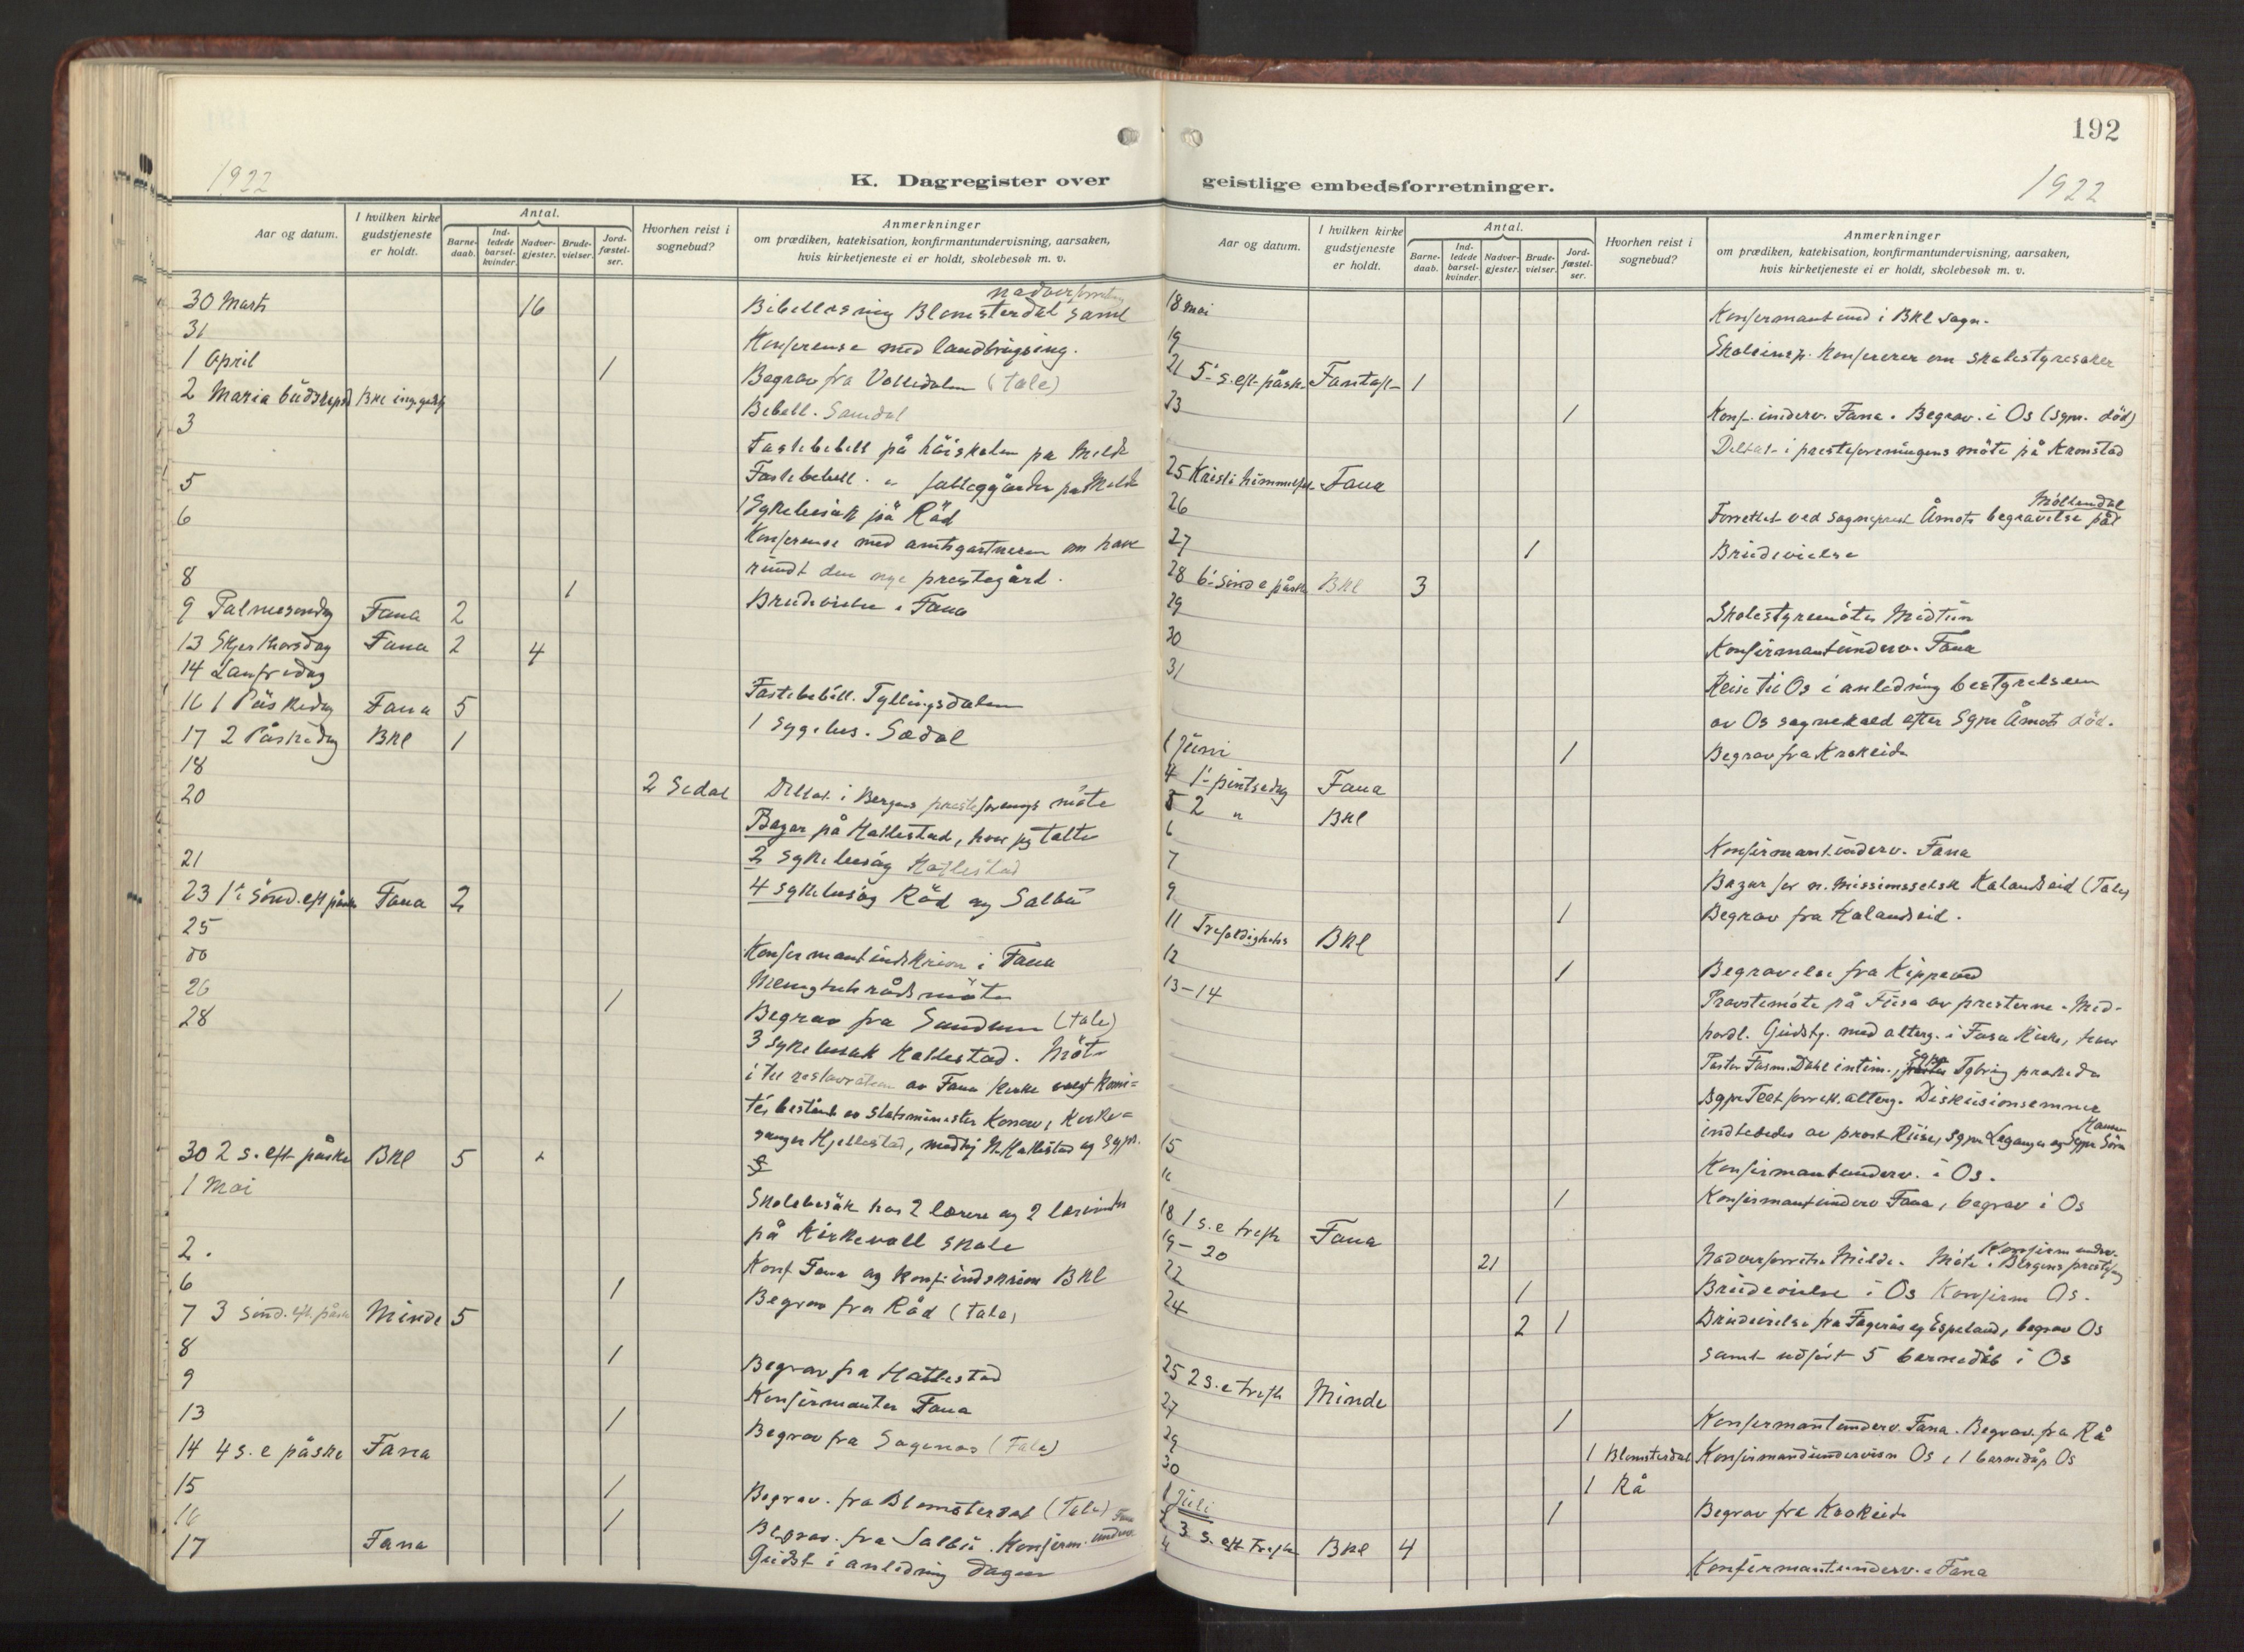 192
1922
1922
K. Dagregister over
geistlige embedsforretninger.
Aar og datum.
I hvilken kirke gudstjeneste er holdt.
Antal.
Barne-daab.
Ind-ledede barsel-kvinder.
Nadver-gjester.
Brude-vielser.
Jord-fæstel-ser.
Hvorhen reist i sognebud?
Anmerkninger
om prædiken, katekisation, konfirmantundervisning, aarsaken,
hvis kirketjeneste ei er holdt, skolebesøk m. v.
30 Marts 16 Bibellesning Blomsterdal saml
31 Konferense med landbrugsing.
1 April 1 Begrav fra Valledalen (tale)
2 Maria budskapsd BKl
Bibell. Samdal
3 Fastebibell på höiskolen på Milde
Fastebibell
5 Sykebesök på Råd
6 Konferense med amtsgartneren om have
rundt den nye prestegård.
8 1 Brudevielse i Fana
9 Palmesondag Fana 2
13 Skjerthorsdag Fana 2 4
14 Langfredag
Fastebibell. Tyllingsdalen
16 1 Påskedag Fana 5
1 sygebes. Sædal
17 2 Påskedag BKl 1
18
20 2 Sedal Deltat i Bergens presteforenings møte
Bazar på Hatlestad, hvor jeg talte
21 2 sykebesög Hatlestad
23 1ste Sönd. eft påske Fana 2
4 sykebesög Råd og Sælbu
25
do Konfirmantindskrivn i Fana
26 Menighetsrådsmöte
28 1 Begrav fra Sandven (tale)
3 sykebesøk Hatlestad. Möte
i til restavration av Fana kirke valgt komi=
té, bestående av statsminister Konow, kirke=
sanger Hjellestad, N. Hatlestad og Sgpr.
30 2 s. eft påske BKl 5
1 Mai Skolebesök hos 2 lærere og 2 lærerinder
på Kirkevoll skole
2. Konf Fana og konf. indskrivn BKl
6 1 Begrav fra Råd (tale)
7 3 Sönd. eft. påske Minde 5
8 1 Begrav fra Hatlestad
9 Konfirmanter Fana
13 1 Begrav fra Sagenas (Tale)
14 4 s. e påske Fana
15 1 Begrav. fra Blomsterdal (Tale)
16 1 Begrav. fra Sælbu. Konfirm. underv
17 Fana Gudst i anledning dagen
Aar og datum.
I hvilken kirke gudstjeneste er holdt.
Antal.
Barne-daab.
Ind-ledede barsel-kvinder.
Nadver-gjester.
Brude-vielser.
Jord-fæstel-ser.
Hvorhen reist i sognebud?
Anmerkninger
om prædiken, katekisation, konfirmantundervisning, aarsaken,
hvis kirketjeneste ei er holdt, skolebesøk m. v.
18 mai Konfirmant und i BKl sogn.
19 Skoleinsp. konfererer om skolestyresaker
21 5te s. eft. påske Fantoft 1
23 1 Konf. underv. Fana. Begrav. i Os (sgpr. död)
Deltat i presteforeningens möte på Kronstad
25 Kristi himmelf. Fana
26 Forrettet ved sogneprest Åmots begravelse på Möllendal
27 1 Brudevielse
28 6te Sönd e påske BKl 3
29 Skolestyremöte Midtun
30 Konfirmantunderv. Fana
31 Reise til Os i anledning bestyrelsen
av Os sognekald efter Sgpr Åmots död.
1 Juni 1 Begrav fra Krokeide
4 1ste pintsedag Fana
5 2 " BKl
6 Konfirmant.underv. Fana
7 Bazar for n. missionsselsk Kalandseid (Tale)
9 1 Begrav fra Kalandseid.
11 Trefoldighets BKl
12 1 Begravelse fra Kippeind
13–14 Provstemöte på Fusa av presterne i Mid-
hordl. Gudstj. med alterg. i Fusa kirke, hvor
Pastor Fasm. Dahl intim., Sgpr Tybring prækede
alterg. Diskusionsemner
indlededes av prost Riise, Sgpr Leganger og Sgpr
15 Konfirmantunderv. i Os.
16 1 Konfirmantunderv Fana, begrav i Os
18 1 s. e trefh Fana
19–20 21 Nadverforretn Milde. Möte i Bergens prestef. Konfirm underv.
22 1 Brudevielse i Os Konfirm Os.
24 2 1 Brudevielse fra Fagerås og Espeland, begrav Os
samt udfört 5 barnedåb i Os
25 2 s. e trefh Minde
27 1 Konfirmantunderv. Fana. Begrav. fra Rå
29 1 Blomsterdal Konfirmandundervisn Os, 1 barnedåp Os
30 1 Rå
1 Juli 1 Begrav fra Krokeide
3 s. eft Trefh BKl 4
4 Konfirmantunderv. i Fana